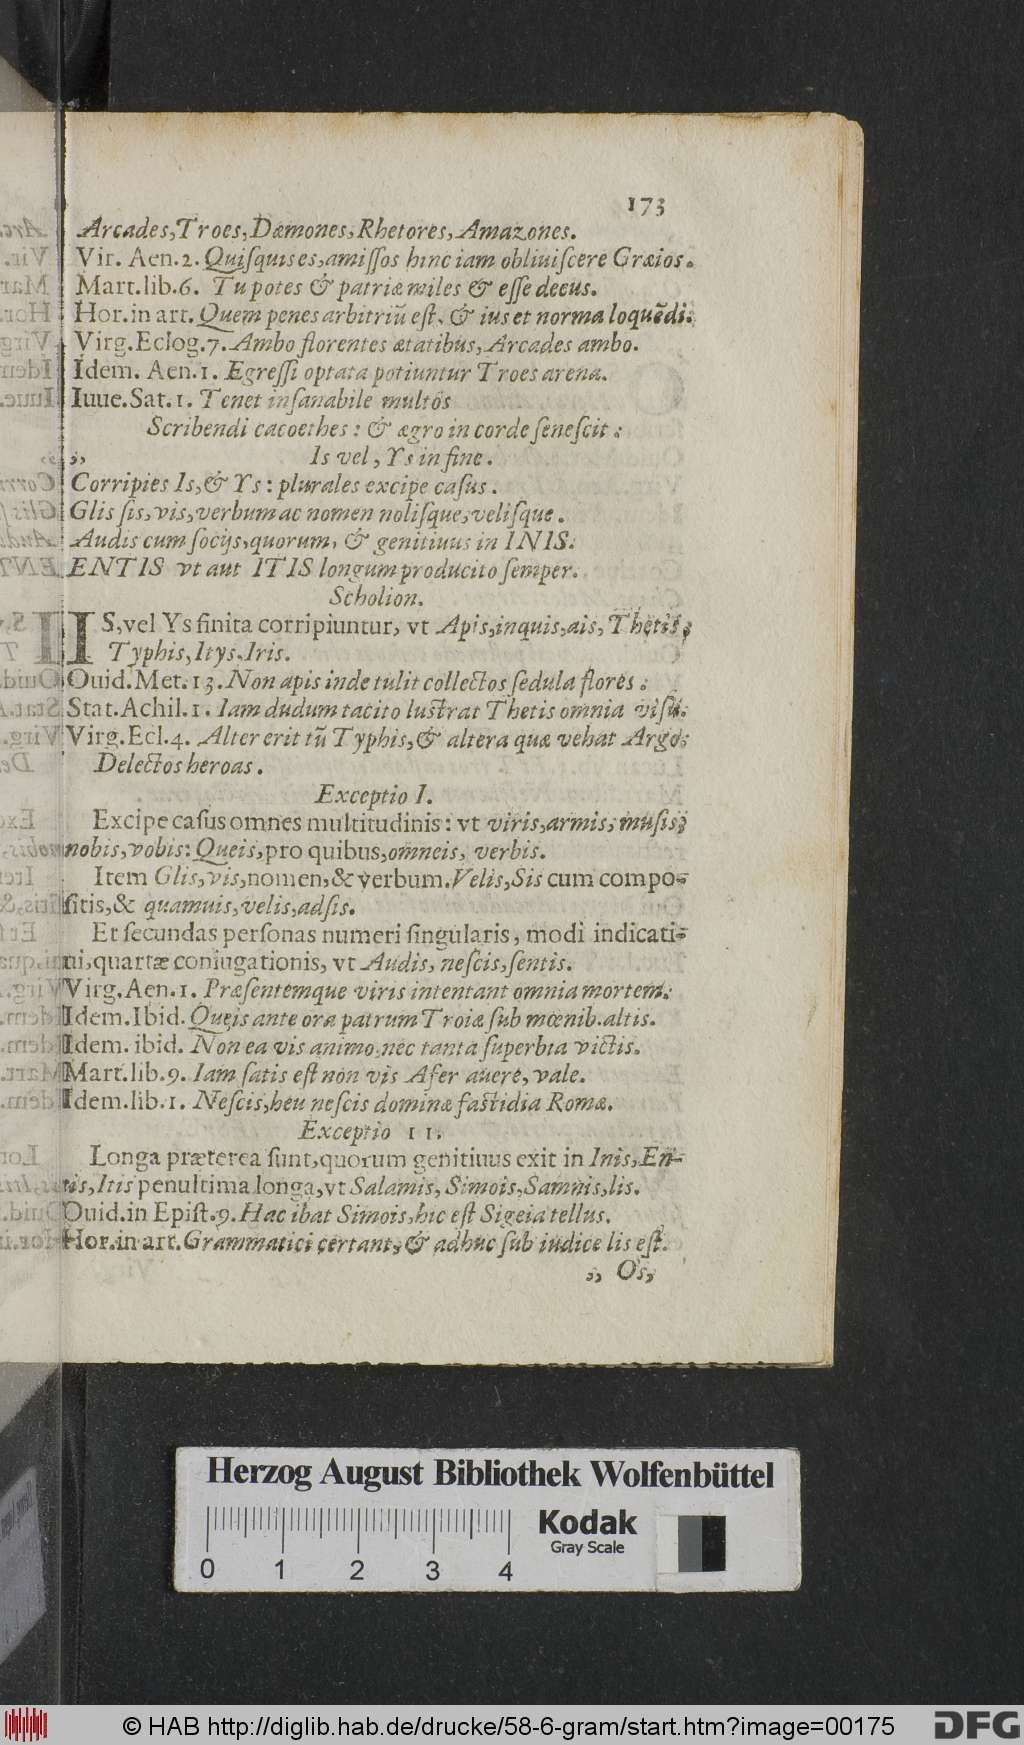 173
Arcades, Troes, Dæmones, Rhetores, Amazones.
Vir. Aen. 2. Quiſquis es, amiſſos hinc iam obliuiſcere Graios.
Mart. lib. 6. Tu potes & patriæ miles & eſſe decus.
Hor. in art. Quem penes arbitriũ eſt, & ius et norma loquẽdi.
Virg. Eclog. 7. Ambo florentes ætatibus, Arcades ambo.
Idem. Aen. 1. Egreſſi optata potiuntur Troes arena.
Iuue. Sat. 1. Tenet inſanabile multos
Scribendi cacoethes: & ægro in corde ſeneſcit:
,, Is vel, Ys in fine.
Corripies Is, & Ys: plurales excipe caſus.
Glis ſis, vis, verbum ac nomen noliſque, veliſque.
Audis cum ſocijs, quorum, & genitiuus in INIS.
ENTIS vt aut ITIS longum producito ſemper.
Scholion.
IS, vel Ys finita corripiuntur, vt Apis, inquis, ais, Thetis,
Typhis, Itys, Iris.
Ouid. Met. 13. Non apis inde tulit collectos ſedula flores:
Stat. Achil. 1. Iam dudum tacito luſtrat Thetis omnia viſu.
Virg. Ecl. 4. Alter erit tũ Typhis, & altera quæ vehat Argos
Delectos heroas.
Exceptio I.
Excipe caſus omnes multitudinis: vt viris, armis, muſis,
nobis, vobis: Queis, pro quibus, omneis, verbis.
Item Glis, vis, nomen, & verbum. Velis, Sis cum compo-
ſitis, & quamuis, velis, adſis.
Et ſecundas perſonas numeri ſingularis, modi indicati-
ui, quartæ coniugationis, vt Audis, neſcis, ſentis.
Virg. Aen. 1. Præſentemque viris intentant omnia mortem.
Idem. Ibid. Queis ante ora patrum Troiæ ſub mœnib. altis.
Idem. ibid. Non ea vis animo, nec tanta ſuperbia victis.
Mart. lib. 9. Iam ſatis eſt non vis Afer auere, vale.
Idem. lib. 1. Neſcis, heu neſcis dominæ faſtidia Romæ.
Exceptio II.
Longa præterea ſunt, quorum genitiuus exit in Inis, En-
tis, Itis penultima longa, vt Salamis, Simois, Samnis, lis.
Ouid. in Epiſt. 9. Hac ibat Simois, hic eſt Sigeia tellus.
Hor. in art. Grammatici certant, & adhuc ſub iudice lis eſt.
,, Os,
Herzog August Bibliothek Wolfenbüttel
Kodak
Gray Scale
0 1 2 3 4
© HAB http://diglib.hab.de/drucke/58-6-gram/start.htm?image=00175
DFG